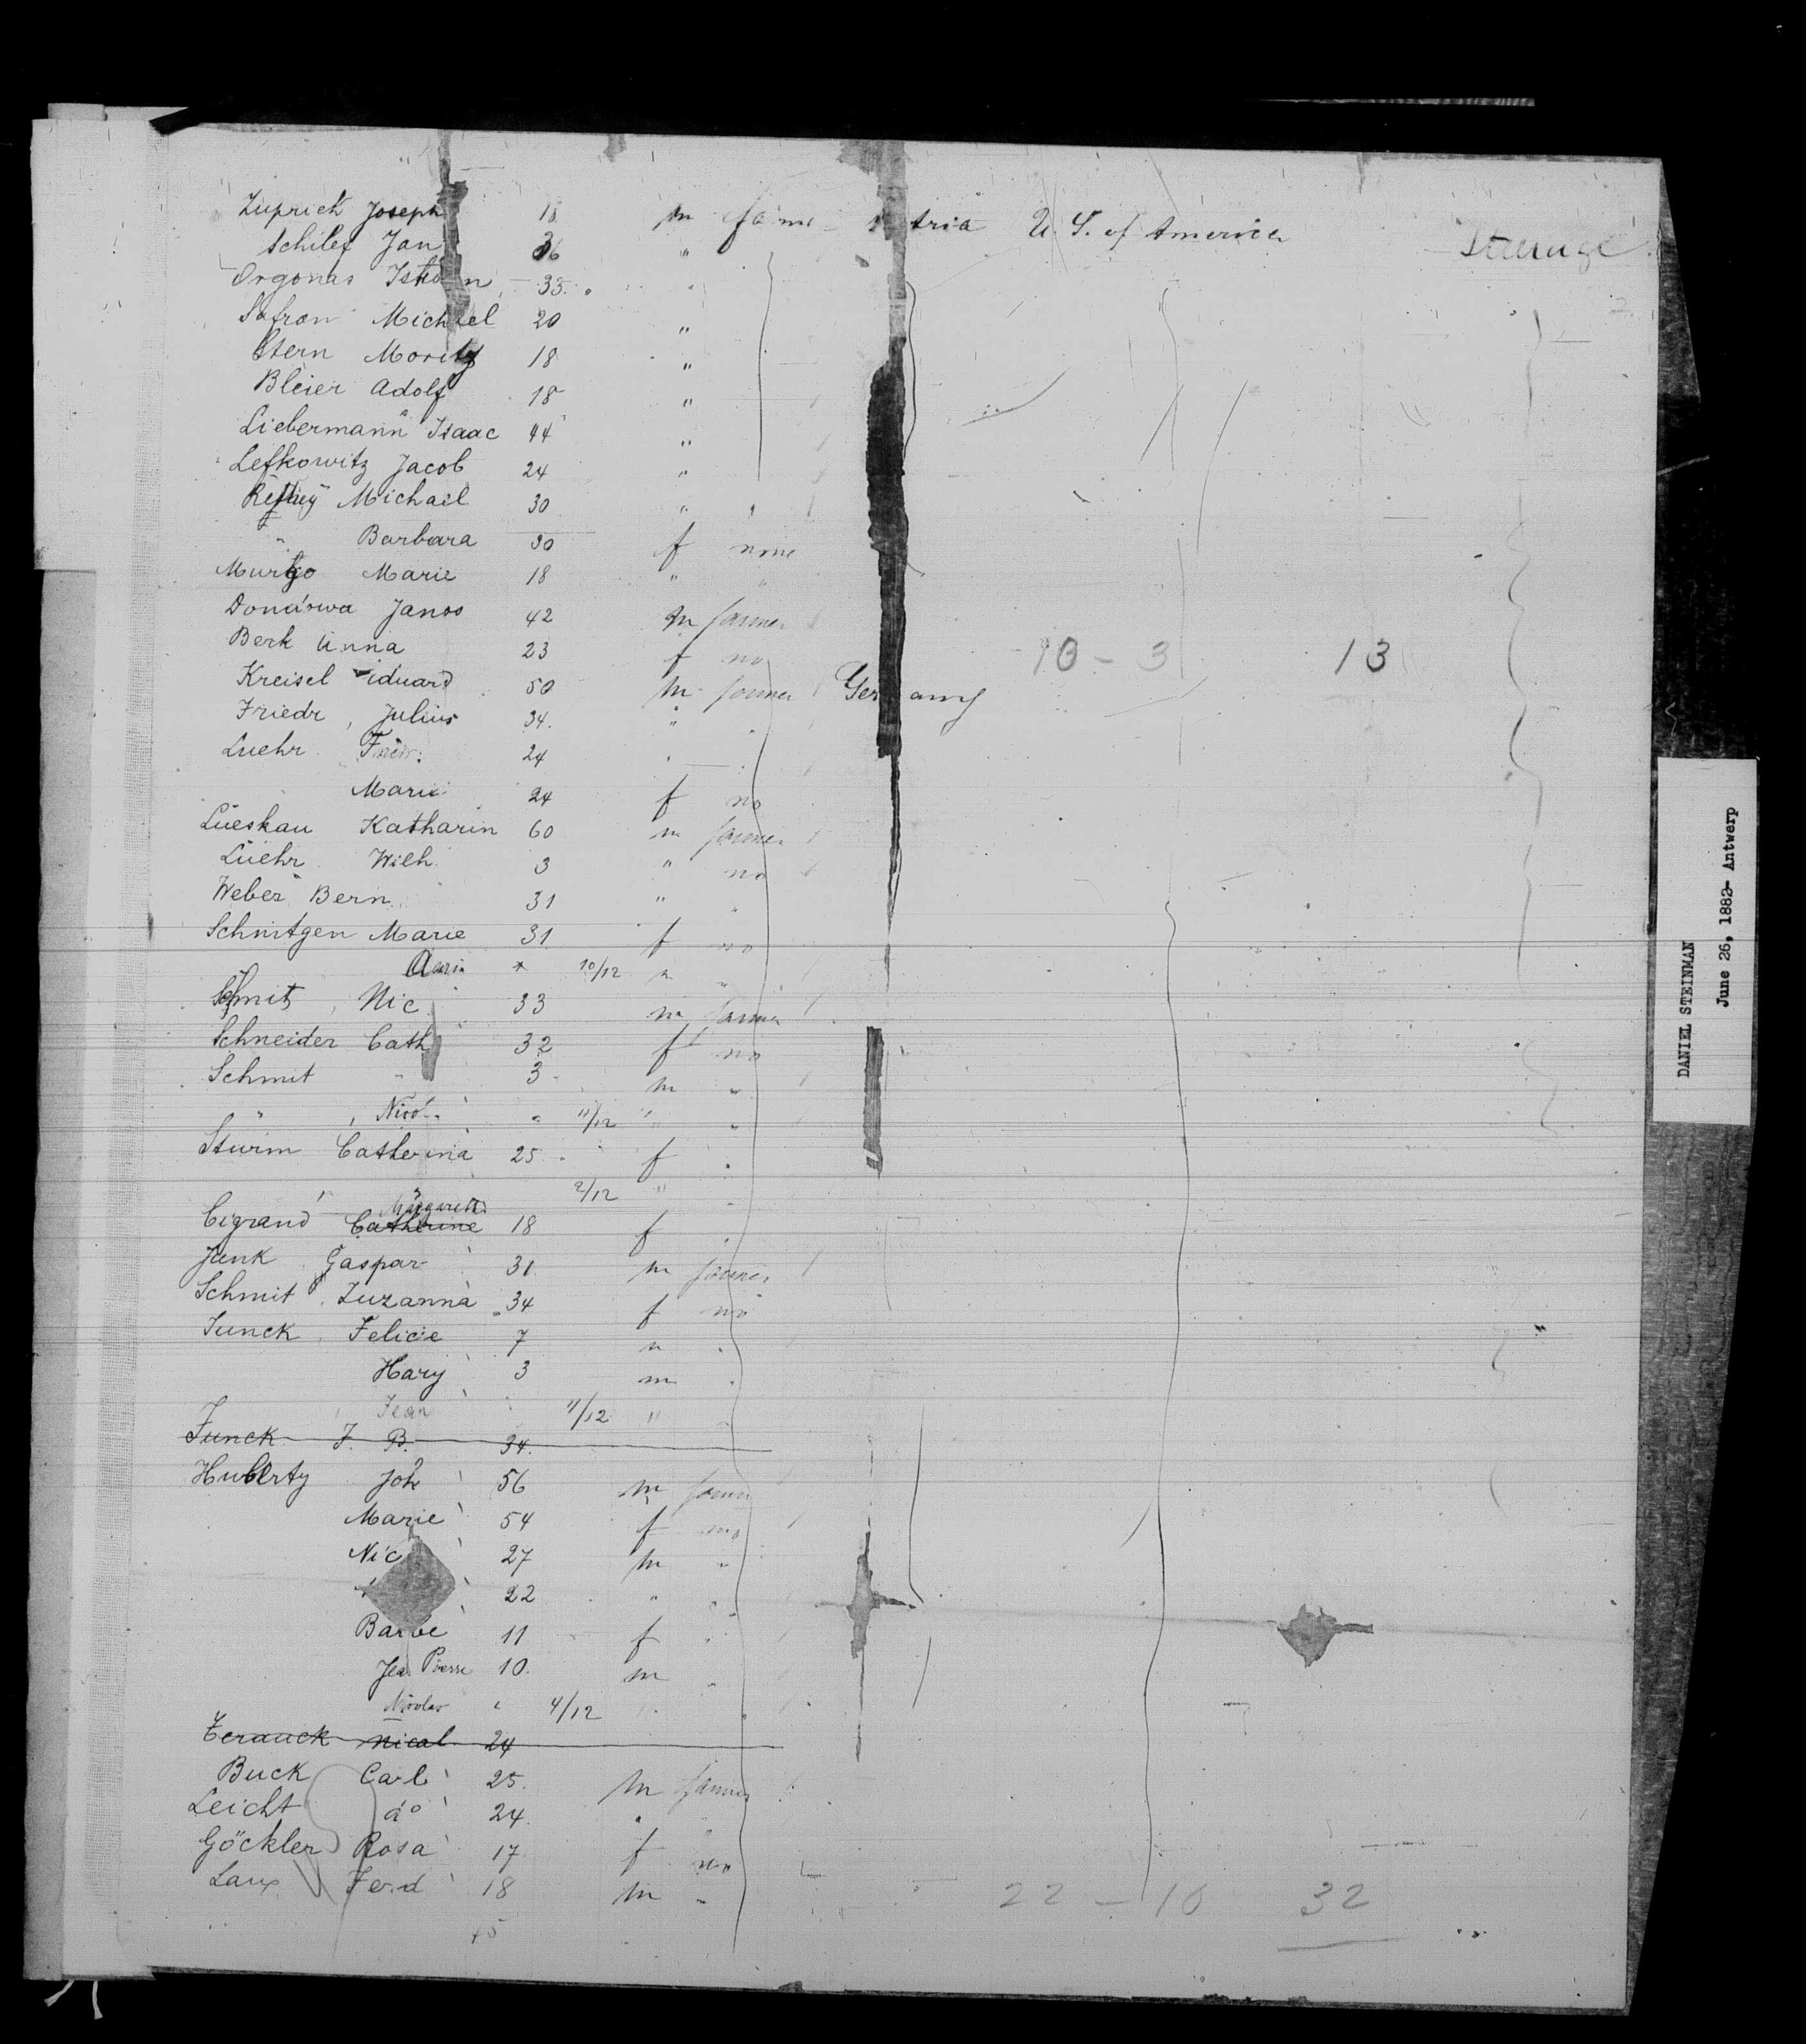 Zuprick Joseph 18 m farmer tria U. S. of America Steerage
Schiley Jan 36 "
Orgonas Istvan 35 "
Safron Michael 20 "
Stern Moritz 18 "
Bleier Adolf 18 "
Liebermann Isaac 44 "
Lefkowitz Jacob 24 "
Michael 30 " "
" Barbara 30 f none
Marie 18 " "
Donáswa Janos 42 m farmer
Berk Anna 23 f no 10 - 3 13
Kreisel Eduard 50 m farmer Germany
Friedr, Julius 34 "
Luehr Friedr. 24 "
Marie 24 f no
Lüeskau Katharin 60 m farmer
Lüehr Wilh. 3 " no
Weber Bern. 31 " "
Schnitgen Marie 31 f no
" 10/12 " "
Schmit, Nic 33 m farmer
Schneider Cath 32 f no
Schmit " 3 m "
" , Nicol. " 11/12 " "
Sturm Catherina 25 f "
2/12 " "
Cigrand Margareth Catherine 18 f "
Junk Gaspar 31 m farmer
Schmit Zuzanna 34 f no
Junck Felicie 7 " "
Hary 3 m "
Jean " 11/12 " "
Junck J. B. 34
Huberty Joh 56 m farmer
Marie 54 f no
Nic 27 m "
22 " "
Barbe 11 f "
Jean Pierre 10 m "
Nicolas " 4/12
Nical 24
Buck Carl 25 m farmer
Leicht do 24 "
Göckler Rosa 17 f no
Laux Ferd 18 m " 22 - 10 32
45
DANIEL STEINMAN
June 26, 1882- Antwerp